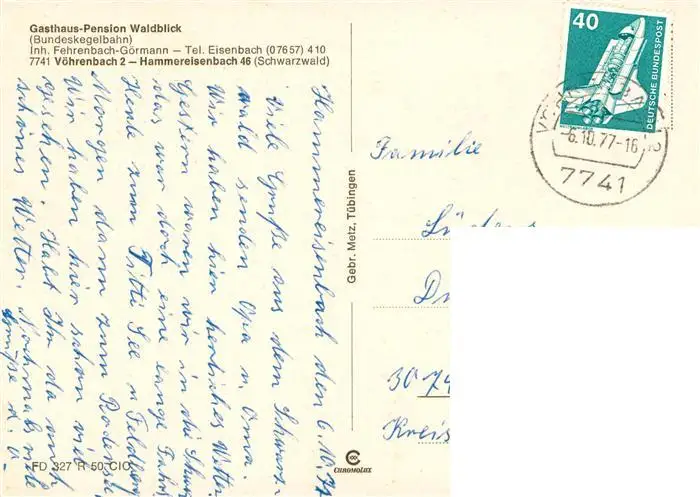 Gasthaus-Pension Waldblick
(Bundeskegelbahn)
Inh. Fehrenbach-Görmann — Tel. Eisenbach (07657) 410
7741 Vöhrenbach 2 — Hammereisenbach 46 (Schwarzwald)
Hammereisenbach den 6.10.77
Viele Grüße aus dem Schwarz-
wald senden Opa u. Oma.
Wir haben hier herliches Wetter
Gestern waren wir in die
das war doch eine lange Fahrt
Heute zum Titti See u Feldberg
Morgen dann zum Bodensee
Wir haben hier schon viel
gesehen. Habt Ihr da auch
schönes Wetter. Nochmals viele
Grüße
Gebr. Metz, Tübingen
40
DEUTSCHE BUNDESPOST
-6.10.77-16
7741
Familie
Kreis
FD 327 R 50 CIO
CHROMOLUX